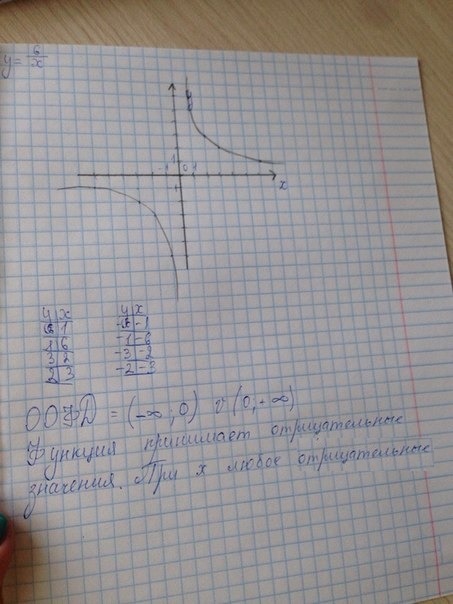 y = 6/x
y
1
-1 0 1
x
1
y | x
6 | 1
1 | 6
3 | 2
2 | 3
y | x
-6 | -1
-1 | -6
-3 | -2
-2 | -3
ООФД = (-∞; 0) v (0, -∞)
Функция принимает отрицательные
значения. При x любое отрицательных